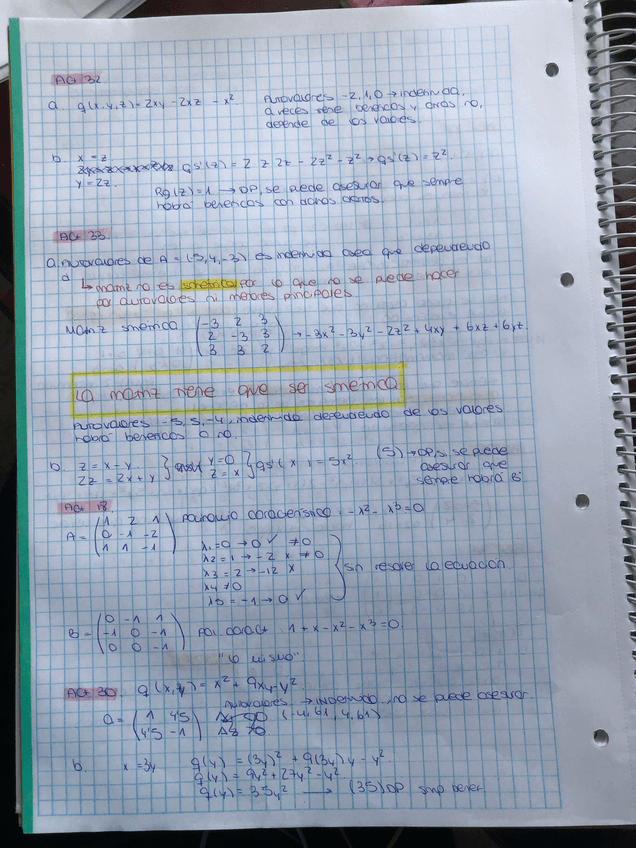 Act 32
a. q(x,y,z) = 2xy - 2xz - x² Autovalores -2,1,0 → indefinida,
a veces tiene beneficios y otras no,
depende de los valores.
b. x = z
qs'(z) = 2 z 2z - 2z² - z² → qs'(z) = z².
y = 2z.
Rg(z) = 1 → DP, se puede asegurar que siempre
habrá beneficios con dichos
Act 33
a. Autovalores de A = (-5,4,-3) es indefinida osea que dependiendo
d
↳ matriz no es simetrica por lo que no se puede hacer
por autovalores ni menores principales.
Matriz simetrica (-3 2 3 → -3x² - 3y² - 2z² + 4xy + 6xz + 6yz.
2 -3 3
3 3 2)
La matriz tiene que ser simetrica
Autovalores -5, 5, -4, indefinida dependiendo de los valores
habrá beneficios o no.
b. z = x - y y = 0 qs'(x) = 5x² (5) → DP, se puede
2z = 2x + y z = x asegurar que
siempre habrá B:
Act 18.
A = (1 2 1 Polinomio caracteristico: -x² - x³ = 0
0 -1 -2
1 1 -1)
λ1 = 0 → 0 ✓ ≠0
λ2 = 1 → -2 x ≠0
λ3 = 2 → -12 x
λ4 ≠ 0
λ5 = -1 → 0 ✓
sin resolver la ecuación
B = (0 -1 1
-1 0 -1
0 0 -1)
Pol. caract. 1 + x - x² - x³ = 0.
"lo mismo"
Act 30. q(x,y) = x² + 9xy - y²
Autovalores → indefinido, no se puede asegurar
a = (1 4'5 (-4,61, 4,61)
4'5 -1)
b. x = 3y q(y) = (3y)² + 9(3y)y - y²
q(y) = 9y² + 27y² - y²
q(y) = 35y² → (35) DP smp benef